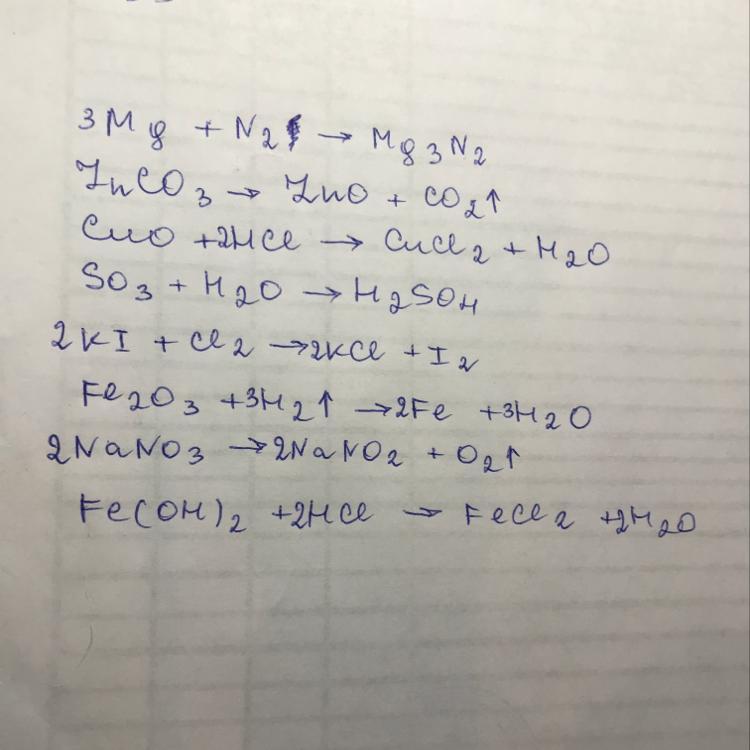 3Mg + N2 → Mg3N2
ZnCO3 → ZnO + CO2↑
CuO + 2HCl → CuCl2 + H2O
SO3 + H2O → H2SO4
2KI + Cl2 → 2KCl + I2
Fe2O3 + 3H2↑ → 2Fe + 3H2O
2NaNO3 → 2NaNO2 + O2↑
Fe(OH)2 + 2HCl → FeCl2 + 2H2O